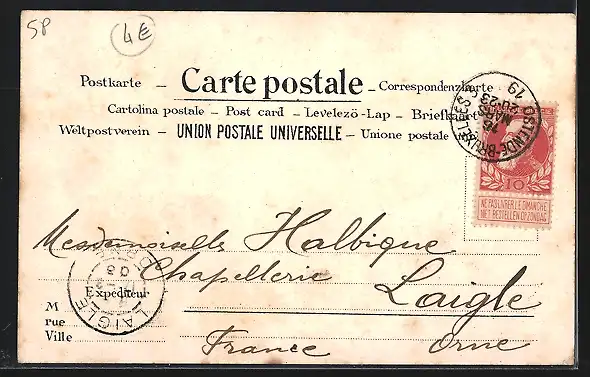 SP
4€
Postkarte – Carte postale – Correspondenzkarte
Cartolina postale – Post card – Levelezö-Lap – Briefkaart
Weltpostverein – UNION POSTALE UNIVERSELLE – Unione postale
OSTENDE-BRUXELLES
MARS
19
10
NE PAS LIVRER LE DIMANCHE
NIET BESTELLEN OP ZONDAG
Mesdemoiselles Halbique
Chapellerie
Laigle
France Orne
LAIGLE
ORNE
03
Expéditeur
M
rue
Ville